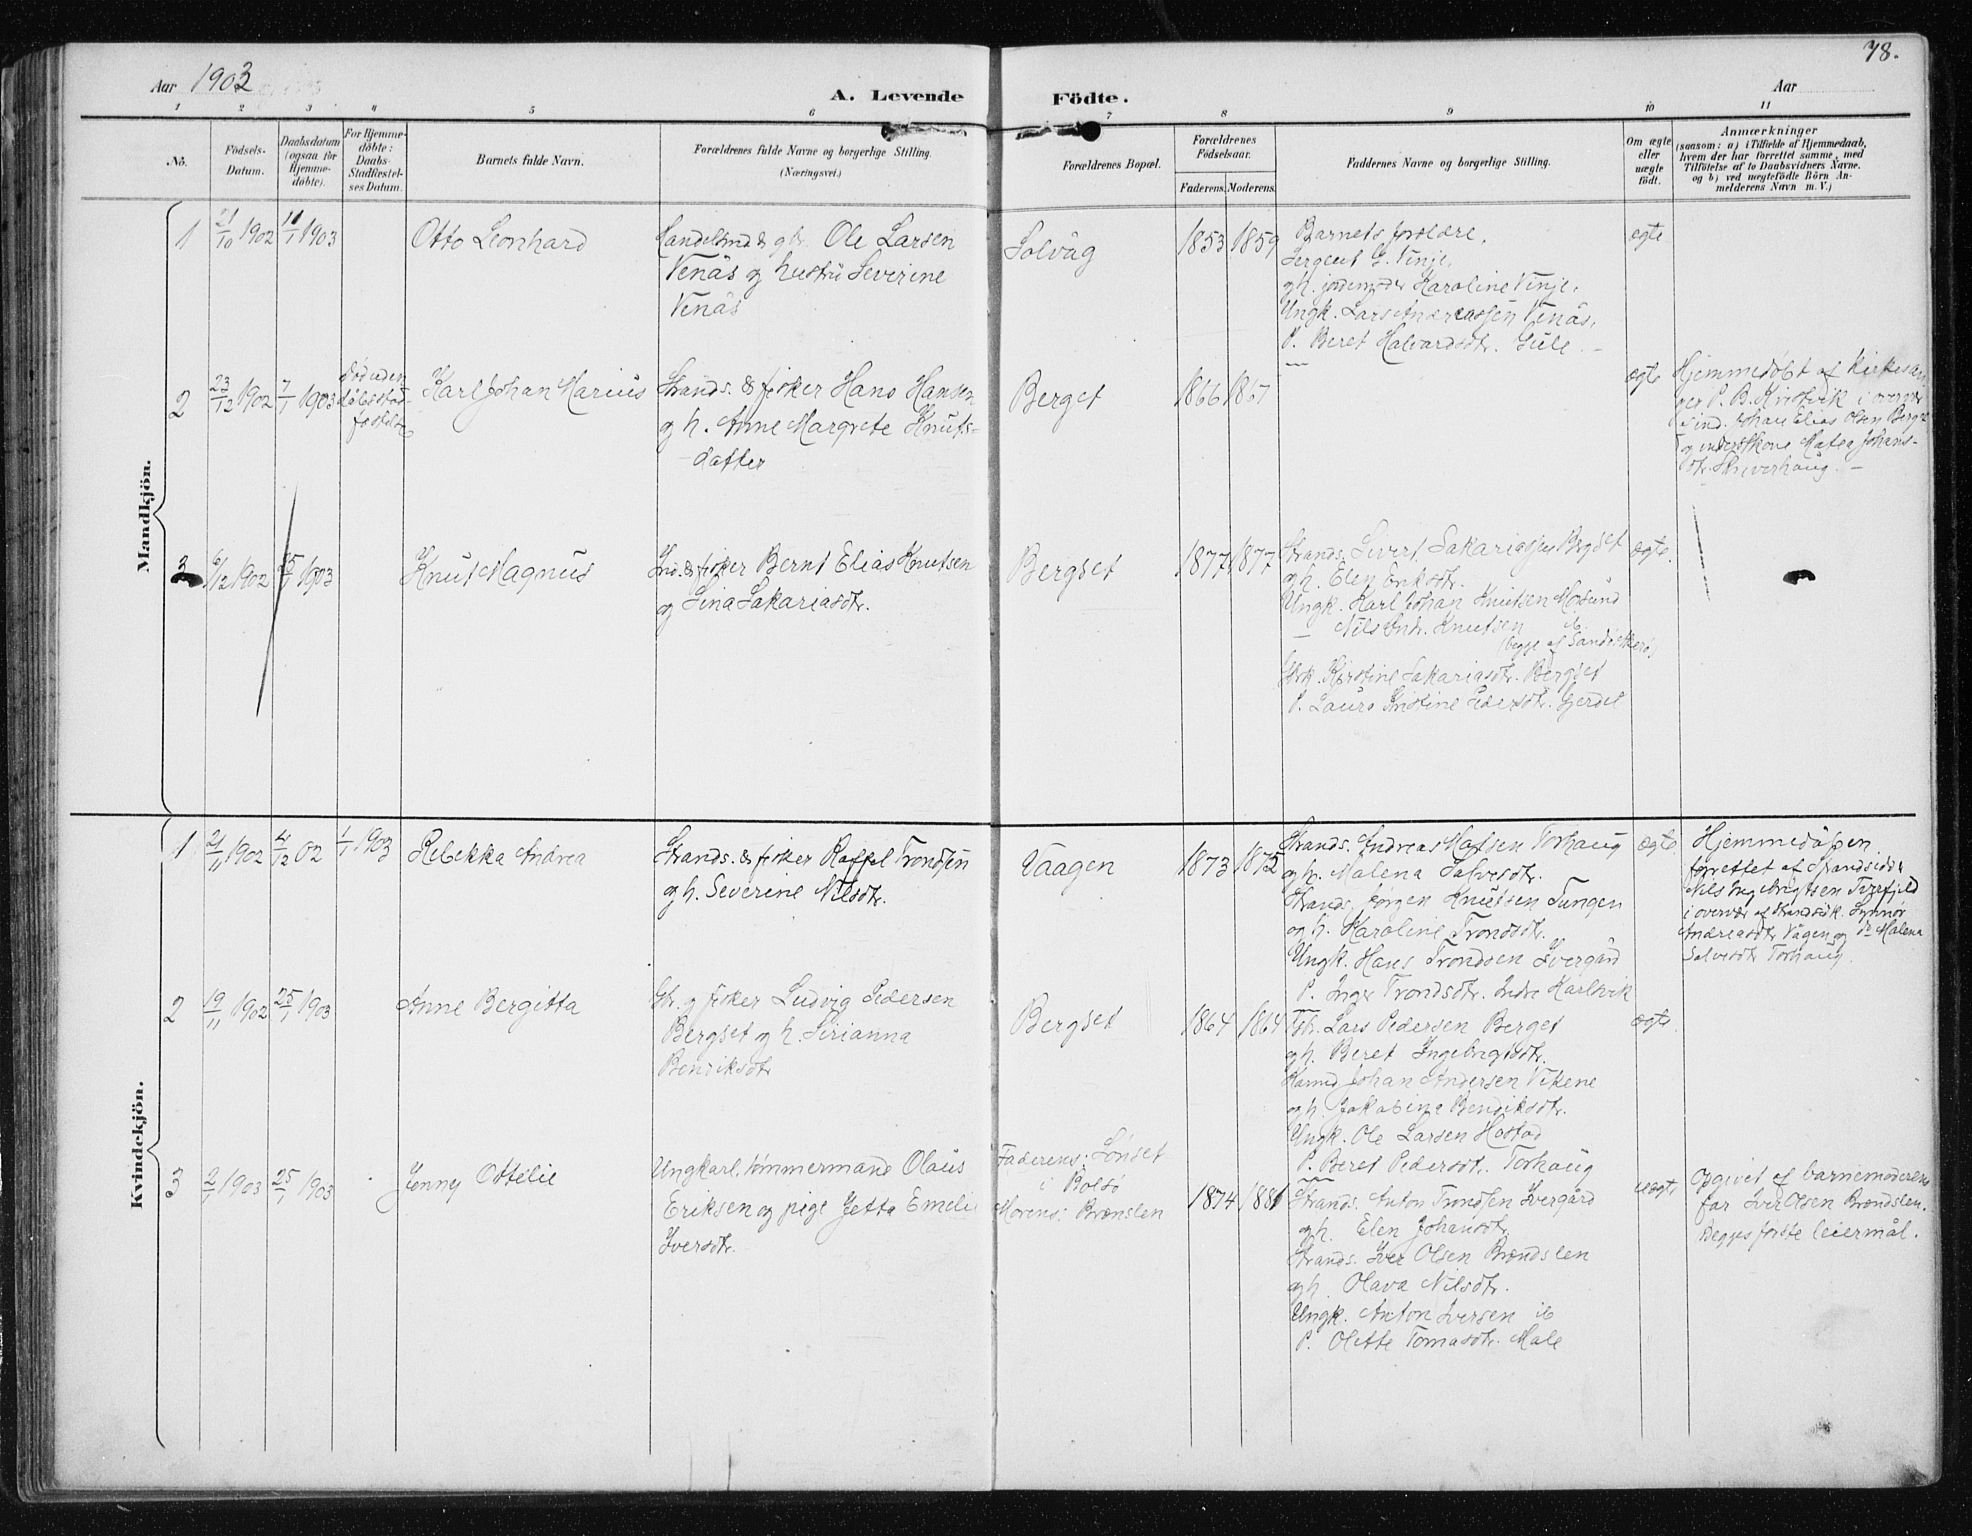 78.
Aar 1903
A. Levende Födte.
Aar
1 2 3 4 5 6 7 8 9 10 11
No.
Födsels-Datum.
Daabsdatum (ogsaa for Hjemme-döbte).
For Hjemme-döbte: Daabs-Stadfæstel-ses Datum.
Barnets fulde Navn.
Forældrenes fulde Navne og borgerlige Stilling.
(Næringsvei.)
Forældrenes Bopæl.
Forældrenes Födselsaar.
Faderens. Moderens.
Faddernes Navne og borgerlige Stilling.
Om ægte eller uægte födt.
Anmærkninger
(saasom: a) i Tilfælde af Hjemmedaab,
hvem der har forrettet samme, med
Tilföielse af to Daabsvidners Navne.
og b) ved uægtefödte Börn An-
melderens Navn m. V.)
Mandkjön.
1 21/10 1902 11/1 1903
Otto Leonhard
Ole Larsen
Venås og hustru Severine
Venås
Solvåg
1853 1859
Barnets forældre,
Sergeant Vinje,
gh. Karoline Vinje,
Ungk. Lars Andreassen Venås,
P. Beret Halvardsdtr.
ægte
2 23/12 1902 7/1 1903
död uden
Karl Johan Marius
Strands. & fisker Hans Hansen
og h. Anne Margrete Knuts-
datter
Berget
1866 1867
ægte
Hjemmedøbt af Kirkesan-
ger P. B. i overvær
af ind. Johan Elias Olsen
og Matea Johans-
dtr.
3 6/12 1902 25/1 1903
Knut Magnus
Ind. & fisker Bernt Elias Knutsen
og Lina Sakariasdtr.
Bergset
1877 1877
Strands. Sivert Sakariassen Bergset
og h. Elen Eriksdtr.
Ungk. Karl Johan Knutsen
— Nils Andr. Knutsen
(begge af
Kirstine Sakariasdtr. Bergset
P. Laura Kristine Pedersdtr. Gjerdet
ægte
Kvindekjön.
1 2/11 1902 4/12 02 1/1 1903
Rebekka Andrea
Strands. & fisker Raffel Trondsen
og h. Severine Nilsdtr.
Vaagen
1873 1875
Strands. Andreas Matsen Torhaug
og h. Malena Salvesdtr.
Strands. Jørgen Knutsen Tangen
og h. Karoline Trondsdtr.
Ungk. Hans Trondsen Ivergård
P. Inger Trondsdtr. Indre Harlsvik
ægte
Hjemmedåpen
forrettet af Strandsidder
Nils Ingebrigtsen
i overvær af
Andreasdtr. Vågen og do Malena
Salvesdtr Torhaug.
2 19/11 1902 25/1 1903
Anne Bergitta
Gbr. og fisker Ludvig Pedersen
Bergset og h. Sirianna
Bendiksdtr
Bergset
1864 1864
Lars Pedersen Berget
og h. Beret Ingebrigtsdtr.
Johan Andersen Vikene
og h. Jakobine Bendiksdtr.
Ungk. Ole Larsen Hostad
P. Beret Pedersdtr. Torhaug
ægte
3 2/1 1903 25/1 1903
Jenny Ottelie
Ungkarl, tømmermand Olaus
Eriksen og pige Jetta Emelie
Iversdtr.
Faderens: Lønset
i Bolsø
Morens: Brænslen
1874 1881
Strands. Anton Trondsen Ivergård
og h. Elen Johansdtr.
Strands. Iver Olsen Brændslen
og h. Olava Nilsdtr.
Ungk. Anton Iversen ib
P. Olette Tomasdtr. Male
uægte
Opgivet af barnemoderens
far Iver Olsen Brændslen.
Begges første leiermål.